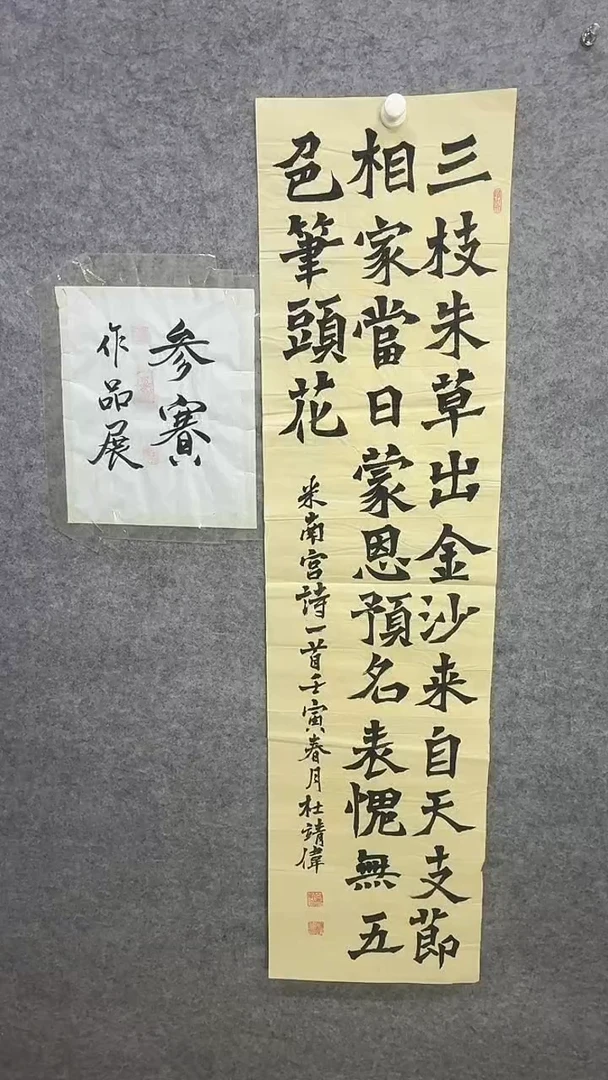 三枝朱草出金沙来自天支節
相家當日蒙恩預名表愧無五
色筆頭花
米南宫詩一首壬寅春月杜靖偉
參賽
作品展